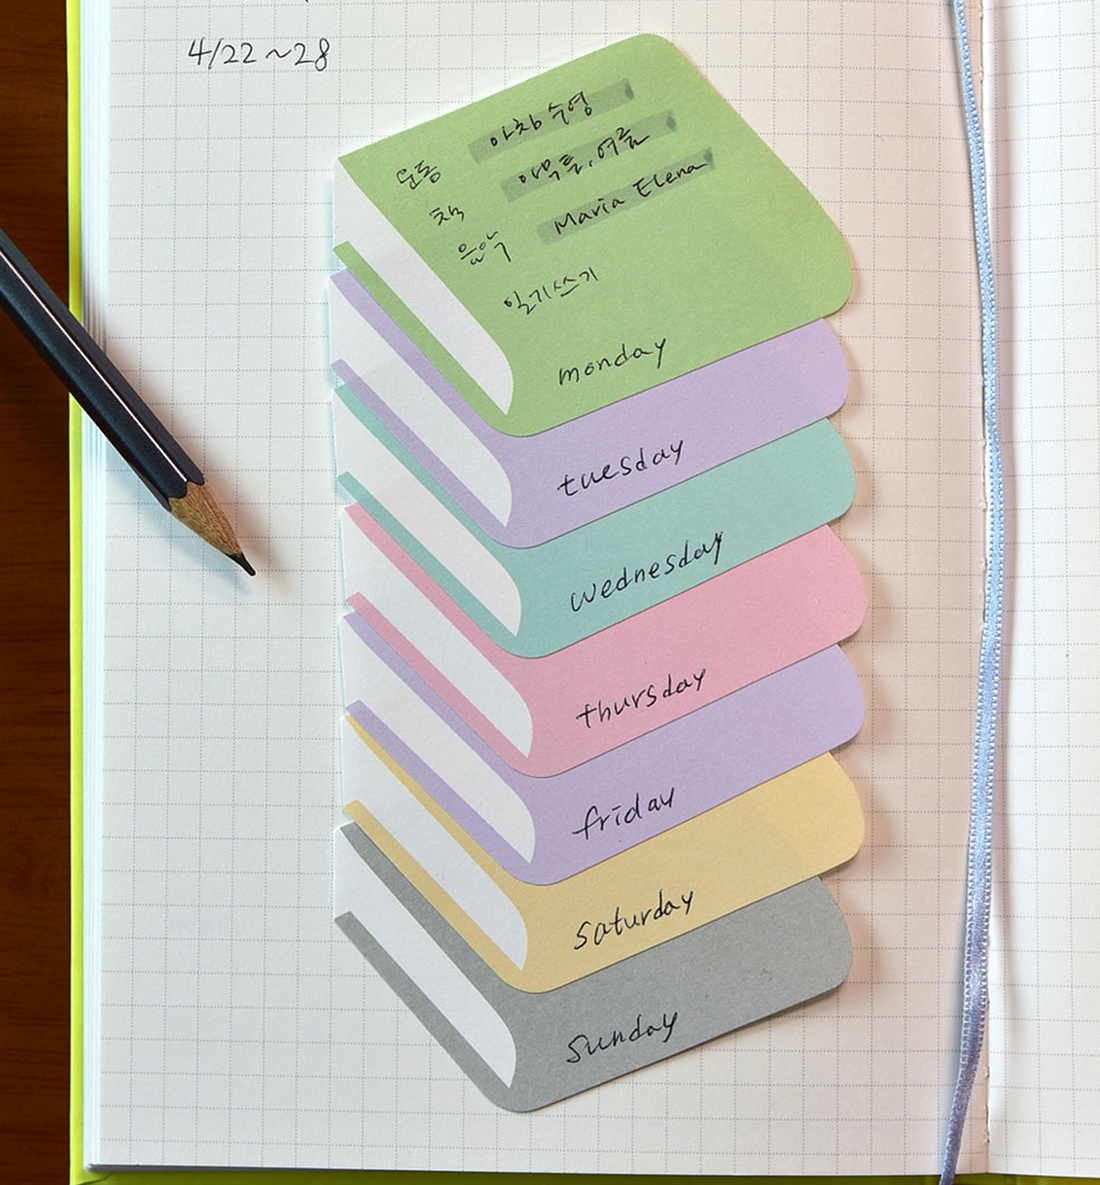 4/22~28
운동 아침 수영
책 아무튼, 여름
음악 Maria Elena
일기쓰기
monday
tuesday
wednesday
thursday
friday
saturday
sunday